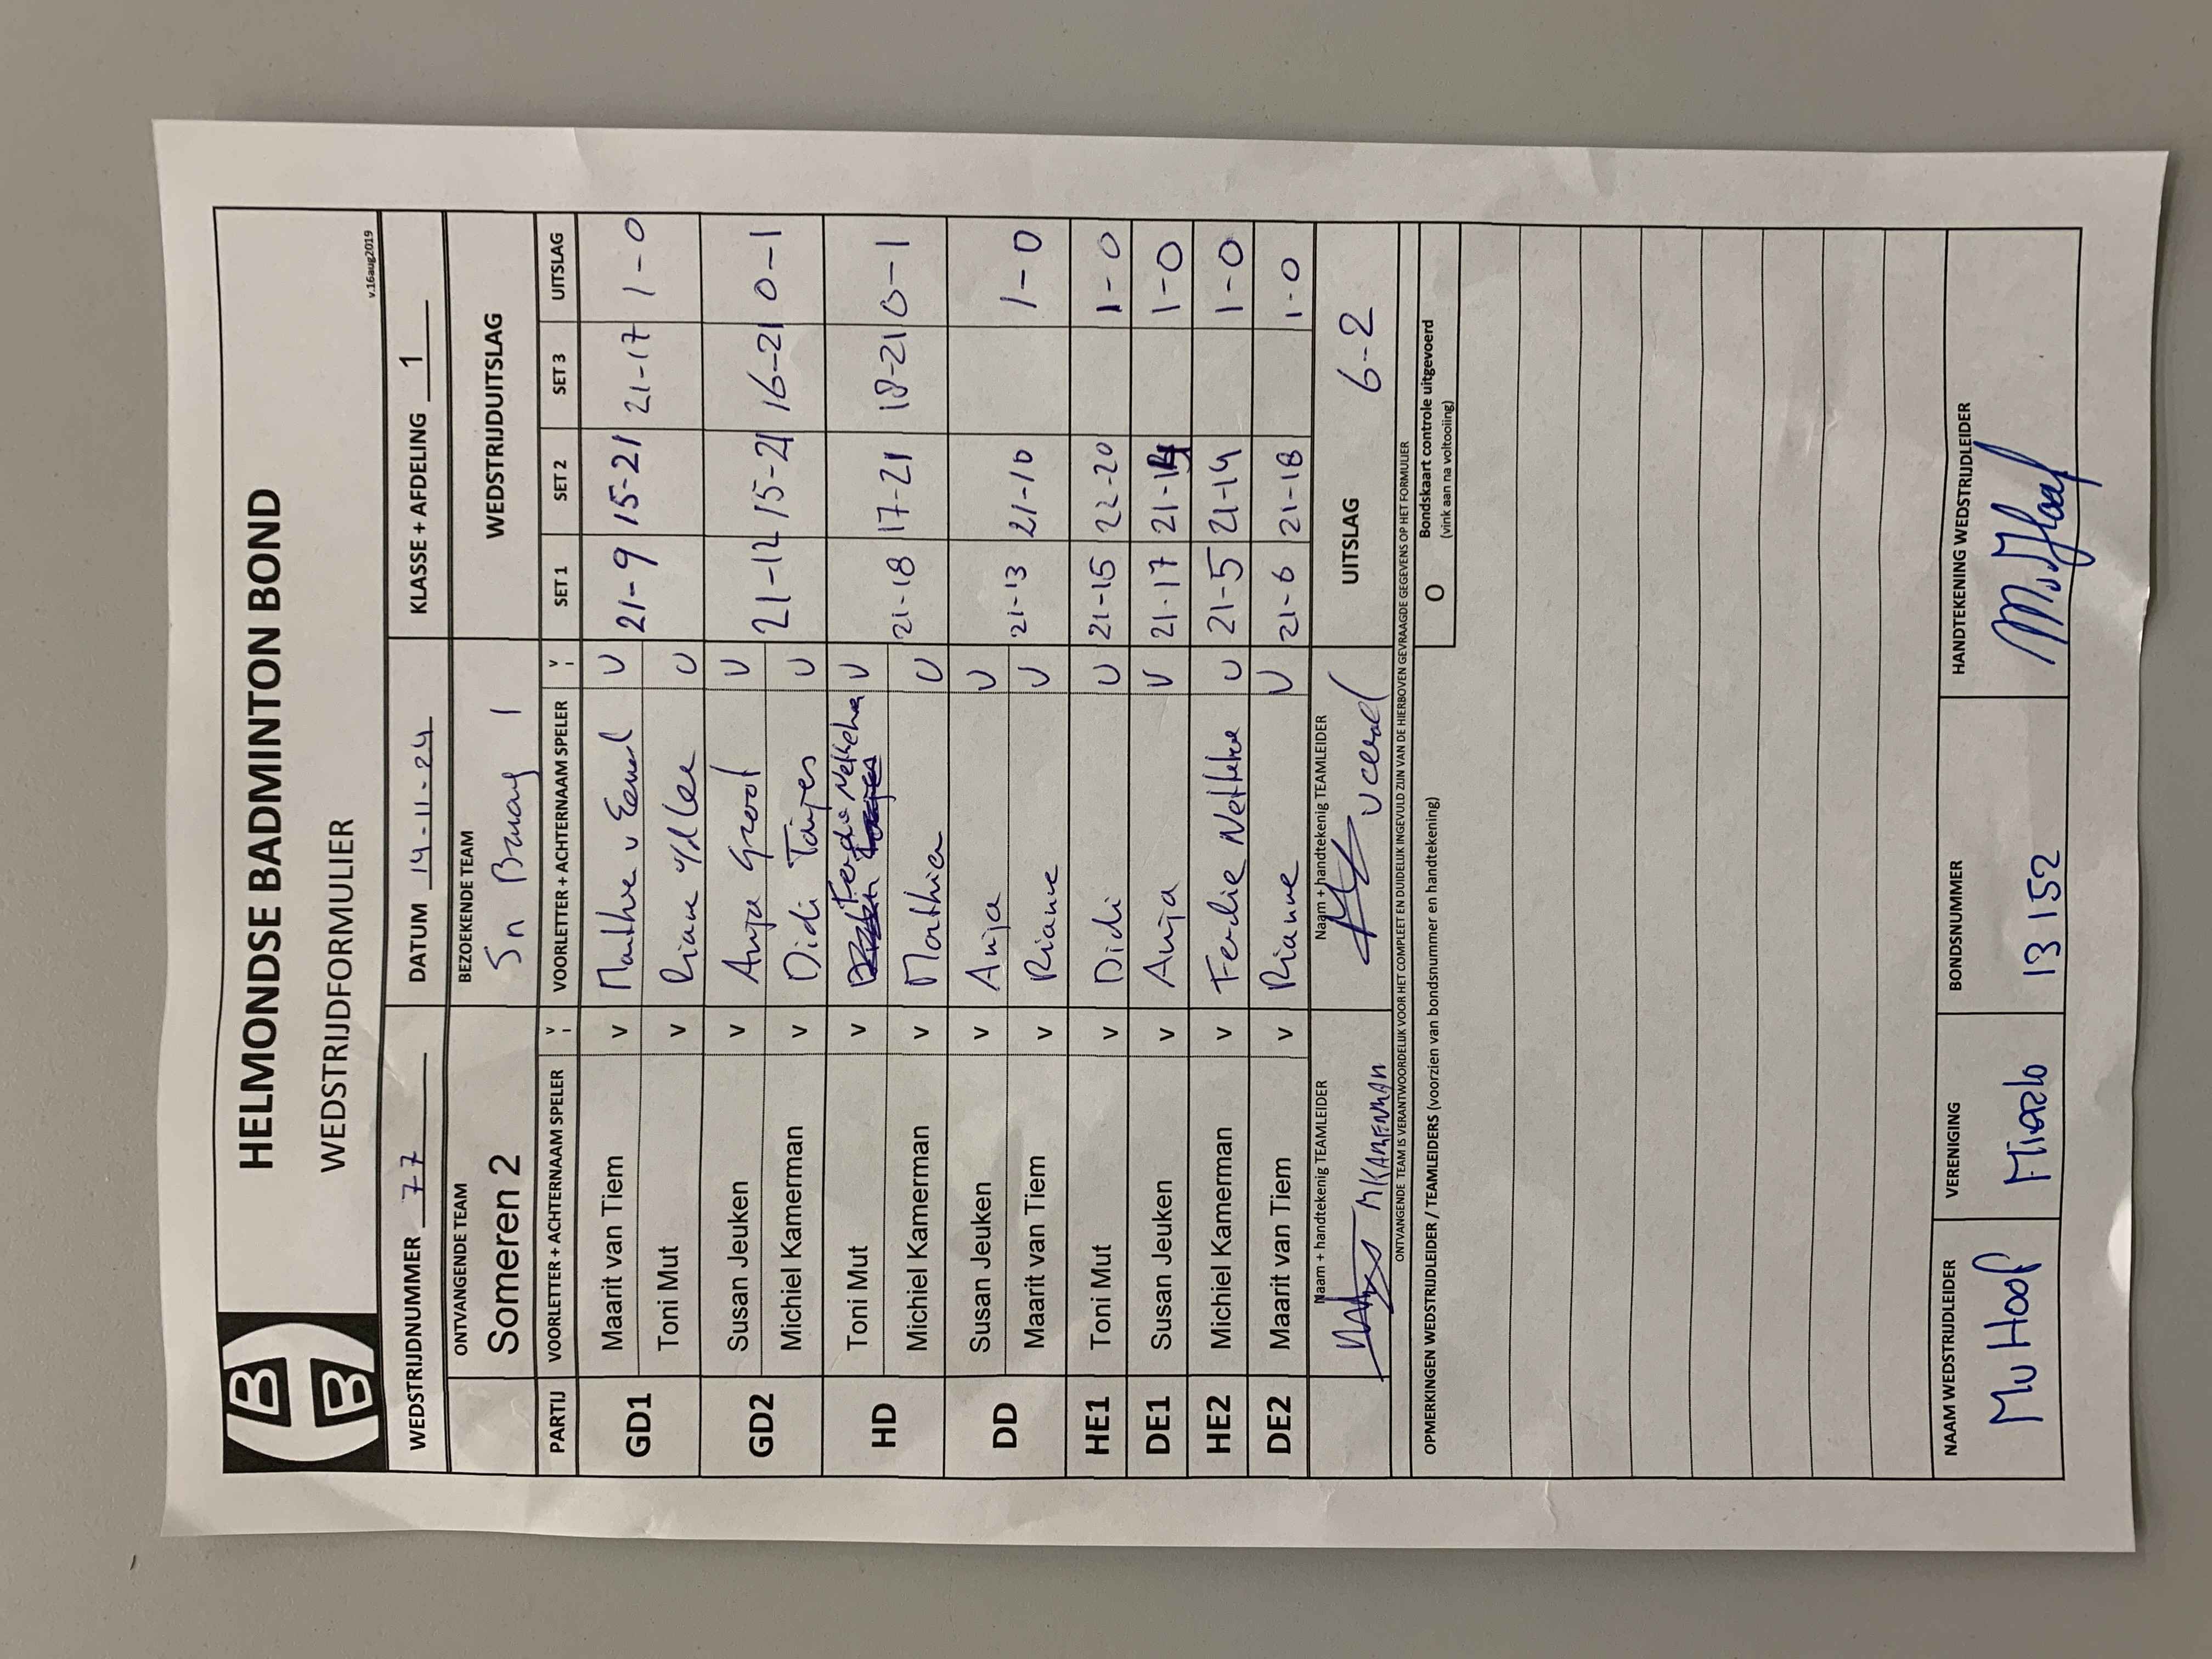 HELMONDSE BADMINTON BOND
WEDSTRIJDFORMULIER
v.16aug2019
WEDSTRIJDNUMMER 77 DATUM 14-11-24 KLASSE + AFDELING 1
ONTVANGENDE TEAM BEZOEKENDE TEAM WEDSTRIJDUITSLAG
Someren 2 1
PARTIJ VOORLETTER + ACHTERNAAM SPELER V VOORLETTER + ACHTERNAAM SPELER V SET 1 SET 2 SET 3 UITSLAG
GD1 Maarit van Tiem v v 21-9 15-21 21-17 1-0
Toni Mut v v
GD2 Susan Jeuken v Anja Groot v 21-12 15-21 16-21 0-1
Michiel Kamerman v Didi v
HD Toni Mut v v 21-18 17-21 18-21 0-1
Michiel Kamerman v v
DD Susan Jeuken v Anja v 21-13 21-10 1-0
Maarit van Tiem v Rianne v
HE1 Toni Mut v Didi v 21-15 22-20 1-0
DE1 Susan Jeuken v Anja v 21-17 21-14 1-0
HE2 Michiel Kamerman v Ferdie v 21-5 21-14 1-0
DE2 Maarit van Tiem v Rianne v 21-6 21-18 1-0
Naam + handtekenig TEAMLEIDER Naam + handtekenig TEAMLEIDER UITSLAG 6-2
M KAMERMAN
ONTVANGENDE TEAM IS VERANTWOORDELIJK VOOR HET COMPLEET EN DUIDELIJK INGEVULD ZIJN VAN DE HIERBOVEN GEVRAAGDE GEGEVENS OP HET FORMULIER
OPMERKINGEN WEDSTRIJDLEIDER / TEAMLEIDERS (voorzien van bondsnummer en handtekening) O Bondskaart controle uitgevoerd
(vink aan na voltooiing)
NAAM WEDSTRIJDLEIDER VERENIGING BONDSNUMMER HANDTEKENING WEDSTRIJDLEIDER
Mierlo 13152